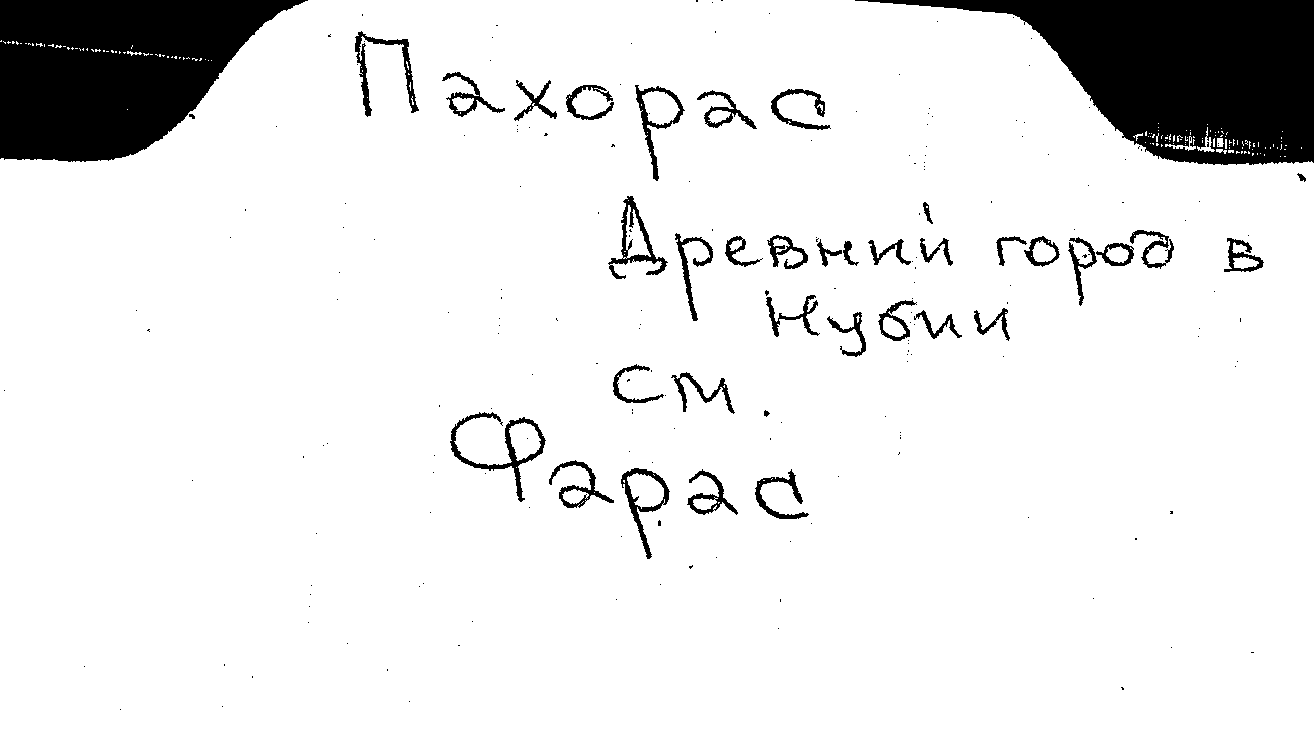 Пахорас
Древний город в
Нубии
см.
Фарас